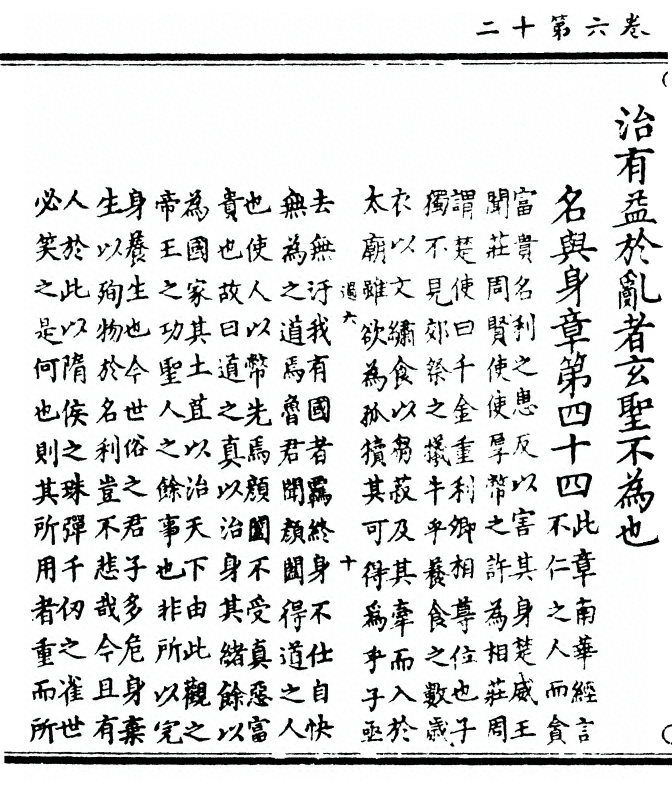 卷六第十二
治有益於亂者玄聖不為也
名與身章第四十四
此章南華經言
不仁之人而貪
富貴名利之患反以害其身楚威王
聞莊周賢使使厚幣之許為相莊周
謂楚使曰千金重利卿相尊位也子
獨不見郊祭之犧牛乎養食之數歲
衣以文繡食以芻菽及其牽而入於
太廟雖欲為孤犢其可得為乎子亟
六 十
去無汙我有國者羈終身不仕自快
無為之道焉魯君聞顏闔得道之人
也使人以幣先焉顏闔不受真惡富
貴也故曰道之真以治身其緒餘以
為國家其土苴以治天下由此觀之
帝王之功聖人之餘事也非所以完
身養生也今世俗之君子多危身棄
生以殉物於名利豈不悲哉今且有
人於此以隋侯之珠彈千仞之雀世
必笑之是何也則其所用者重而所